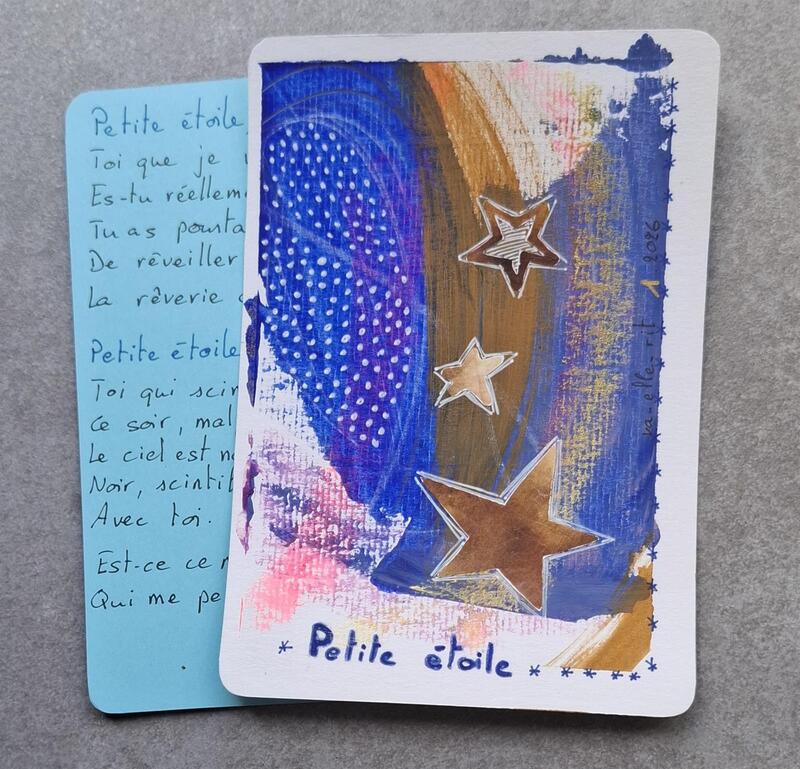 Petite étoile,
Toi que je
Es-tu réellem
Tu as pourta
De réveiller
La rêverie
Petite étoile
Toi qui scin
Ce soir, mal
Le ciel est no
Noir, scintil
Avec toi.
Est-ce ce
Qui me pe
Petite étoile
va-elle-rit 1 2026